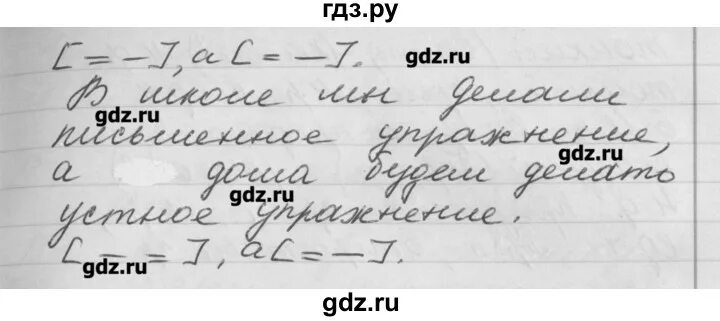 гдз.ру
[= –], а [= –].
gdz.ru
В школе мы делали
gdz.ru
письменное упражнение,
gdz.ru
а дома будем делать
gdz.ru
устное упражнение.
[– =], а [= –].
gdz.ru
gdz.ru